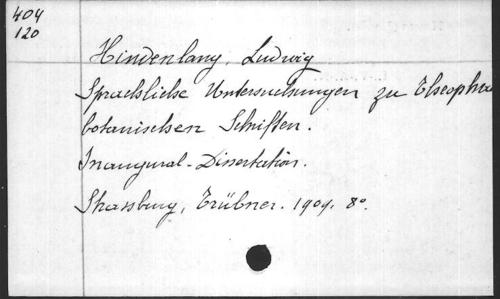 404
120
Hindenlang, Ludwig
Sprachliche Untersuchungen zu Theophra
botanischen Schriften.
Inaugural-Dissertation.
Strassburg, Trübner. 1909. 8°.